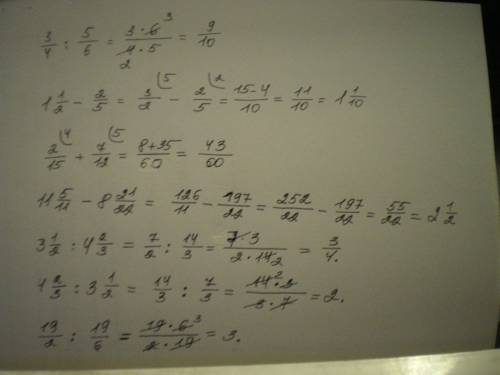 3/4 : 5/6 = 3·6³/4₂·5 = 9/10
1 1/2 - 2/5 = 3/2 (5 - 2/5 (2 = 15-4/10 = 11/10 = 1 1/10
2/15 (4 + 7/12 (5 = 8+35/60 = 43/60
11 5/11 - 8 21/22 = 126/11 - 197/22 = 252/22 - 197/22 = 55/22 = 2 1/2
3 1/2 : 4 2/3 = 7/2 : 14/3 = 7·3/2·14₂ = 3/4.
4 2/3 : 3 1/2 = 14/3 : 7/3 = 14²·3/3·7 = 2.
19/2 : 19/6 = 19·6³/2·19 = 3.